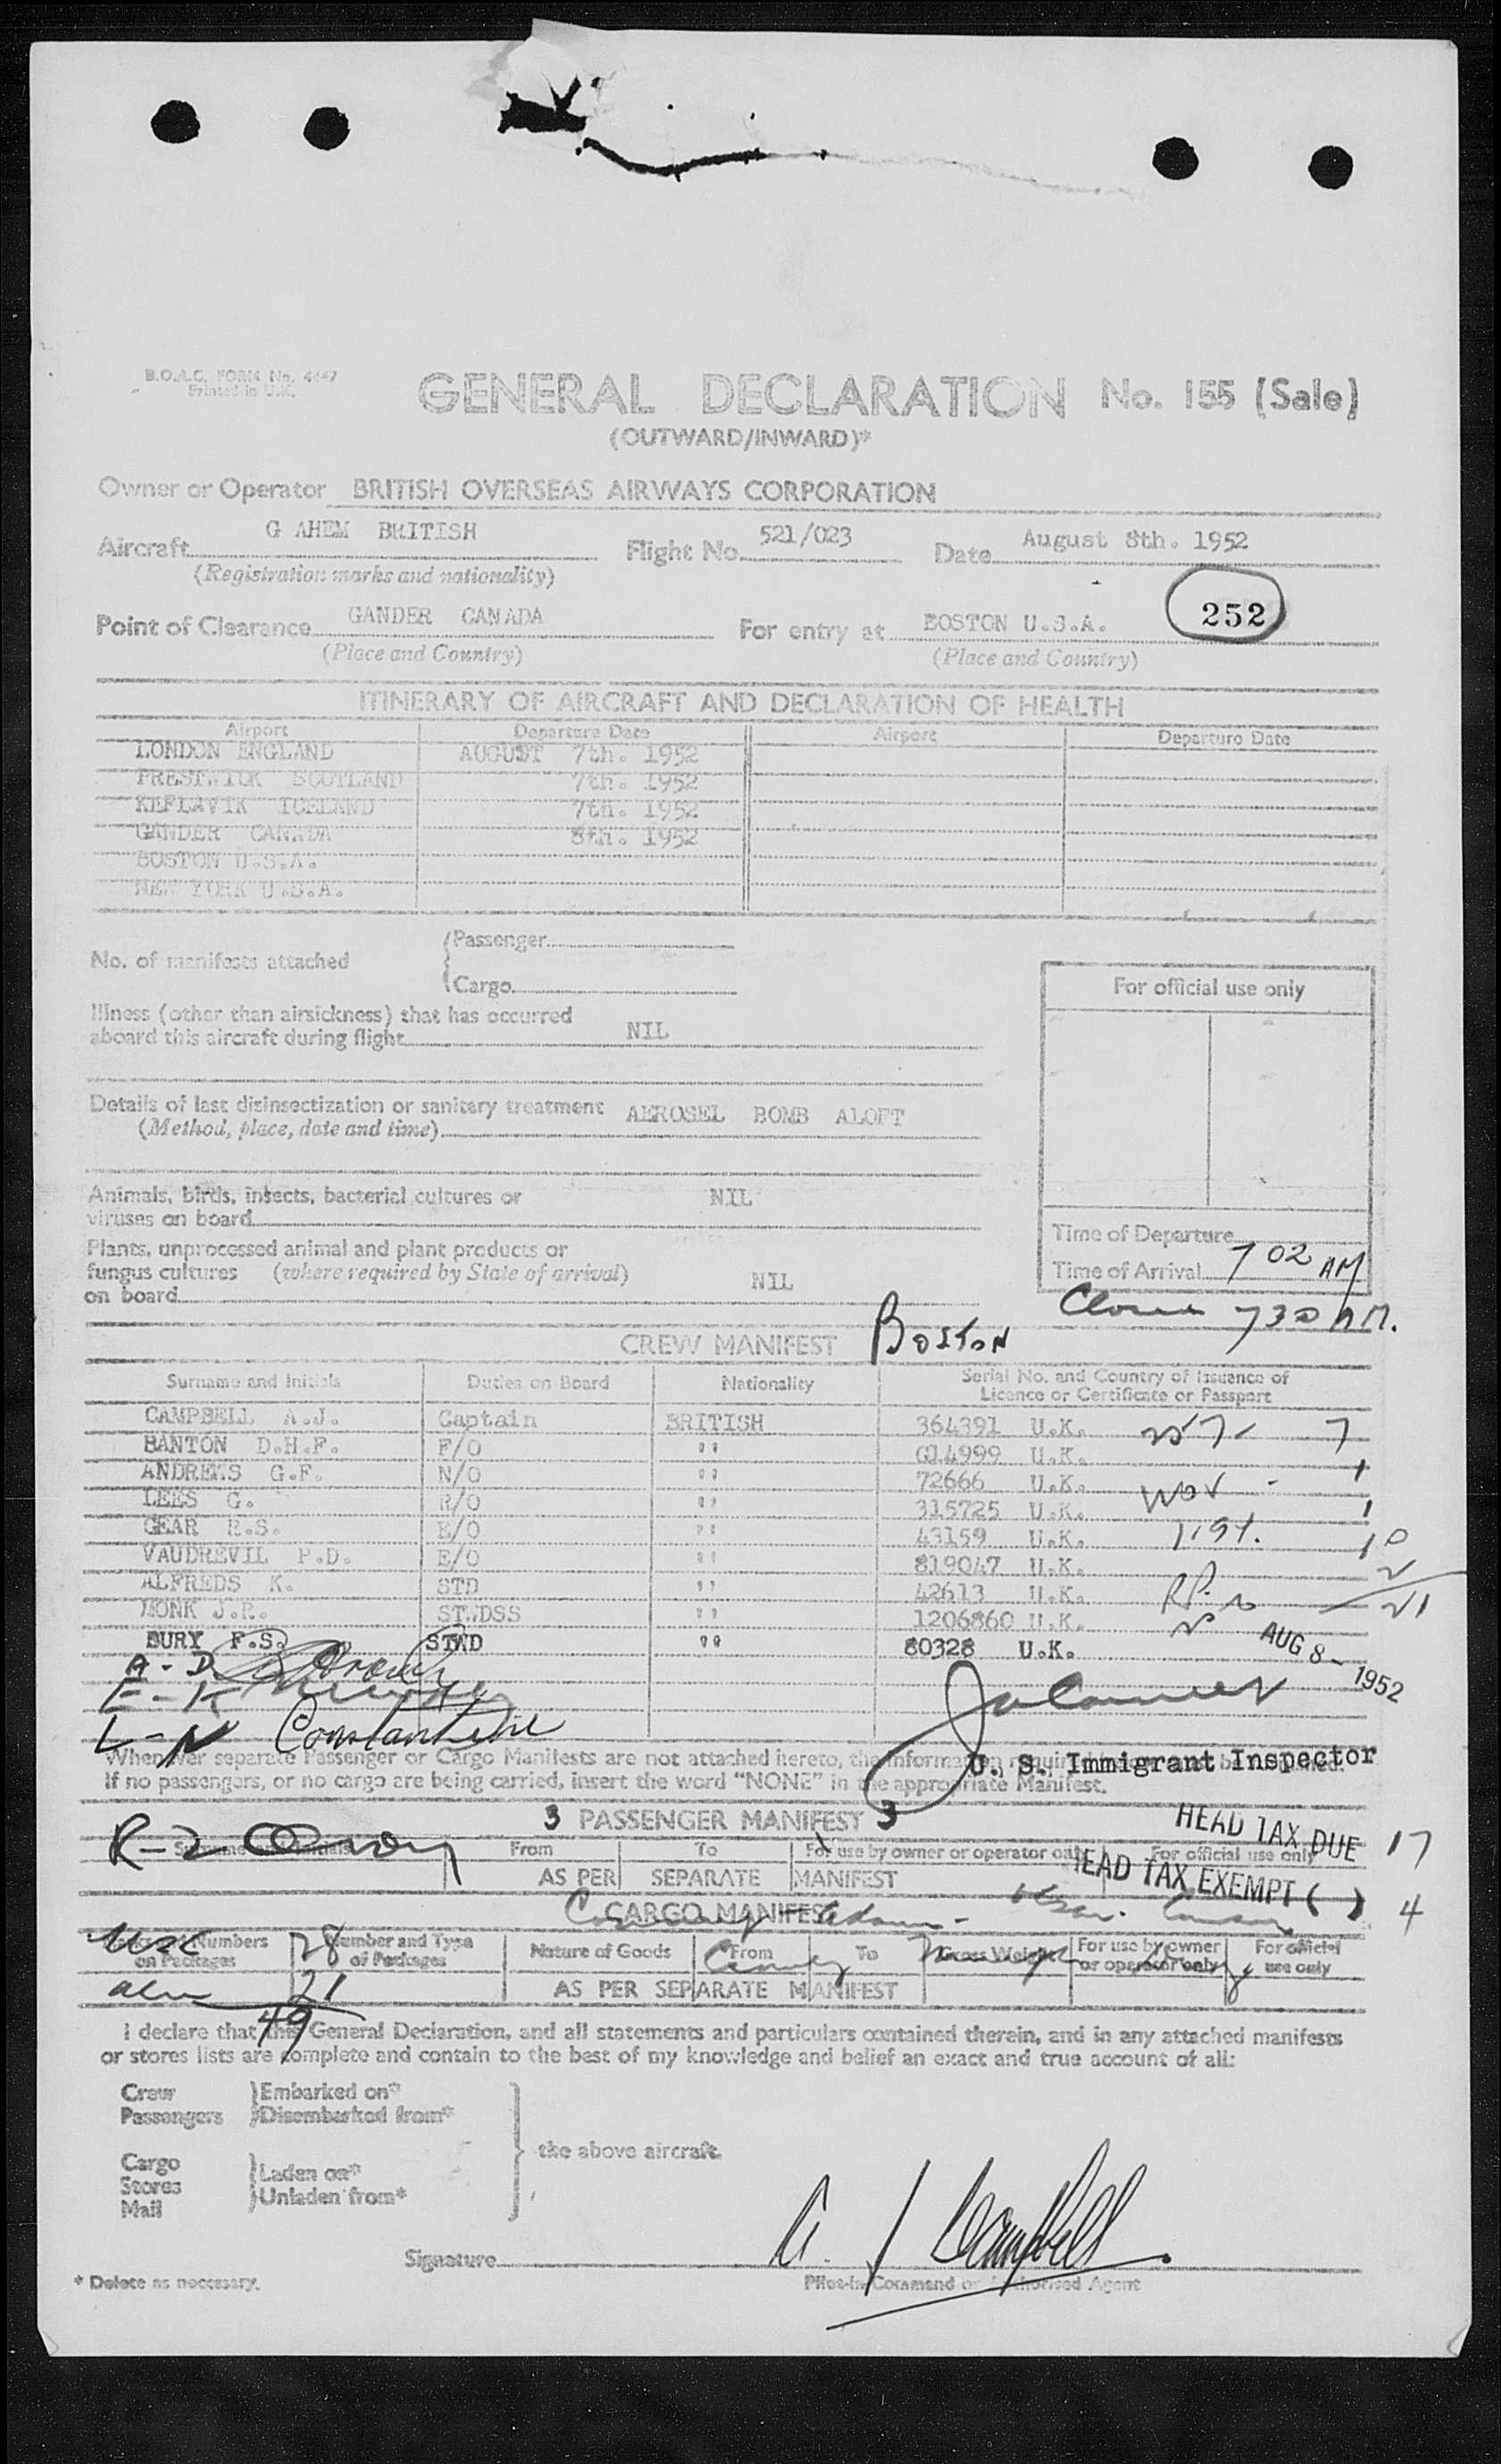 B.O.A.C. FORM No. 4447
Printed in U.K.
GENERAL DECLARATION No. 155 (Sale)
(OUTWARD/INWARD)*
Owner or Operator BRITISH OVERSEAS AIRWAYS CORPORATION
Aircraft G AHEM BRITISH Flight No. 521/023 Date August 8th. 1952
(Registration marks and nationality)
252
Point of Clearance GANDER CANADA For entry at BOSTON U.S.A.
(Place and Country) (Place and Country)
ITINERARY OF AIRCRAFT AND DECLARATION OF HEALTH
Airport Departure Date Airport Departure Date
LONDON ENGLAND AUGUST 7th. 1952
PRESTWICK SCOTLAND 7th. 1952
KEFLAVIK ICELAND 7th. 1952
GANDER CANADA 8th. 1952
BOSTON U.S.A.
NEW YORK U.S.A.
No. of manifests attached {Passenger
{Cargo
For official use only
Illness (other than airsickness) that has occurred
aboard this aircraft during flight NIL
Details of last disinsectization or sanitary treatment AEROSEL BOMB ALOFT
(Method, place, date and time)
Animals, birds, insects, bacterial cultures or NIL
viruses on board
Time of Departure
Plants, unprocessed animal and plant products or
fungus cultures (where required by State of arrival) NIL
on board
Time of Arrival 7 02 AM
730 AM.
CREW MANIFEST BOSTON
Surname and Initials Duties on Board Nationality Serial No. and Country of Issuance of
Licence or Certificate or Passport
CAMPBELL A.J. Captain BRITISH 364391 U.K. 7
BANTON D.H.F. F/O " 4999 U.K. 1
ANDREWS G.F. N/O " 72666 U.K.
LEES G. R/O " 315725 U.K. 1
GEAR R.S. E/O " 43159 U.K.
VAUDREVIL P.D. E/O " 819047 U.K.
ALFREDS K. STD " 42613 U.K.
MONK J.R. STWDSS " 1206860 U.K. 21
BURY F.S. STWD " 80328 U.K.
AUG 8 - 1952
A - D
E - K
L - N Constantine
Whenever separate Passenger or Cargo Manifests are not attached hereto, the information
U. S. Immigrant Inspector
If no passengers, or no cargo are being carried, insert the word "NONE" in the appropriate Manifest.
3 PASSENGER MANIFEST 3
HEAD TAX DUE 17
R-Z
From To For use by owner or operator only For official use only
AS PER SEPARATE MANIFEST
HEAD TAX EXEMPT ( ) 4
CARGO MANIFEST
USC 28
Numbers on Packages Number and Type of Packages Nature of Goods From To Gross Weight For use by owner or operator only For official use only
21
AS PER SEPARATE MANIFEST
49
I declare that this General Declaration, and all statements and particulars contained therein, and in any attached manifests
or stores lists are complete and contain to the best of my knowledge and belief an exact and true account of all:
Crew }Embarked on*
Passengers }Disembarked from*
the above aircraft.
Cargo }Laden on*
Stores }Unladen from*
Mail
Signature A. J Campbell
* Delete as necessary.
Pilot-in-Command or Authorised Agent